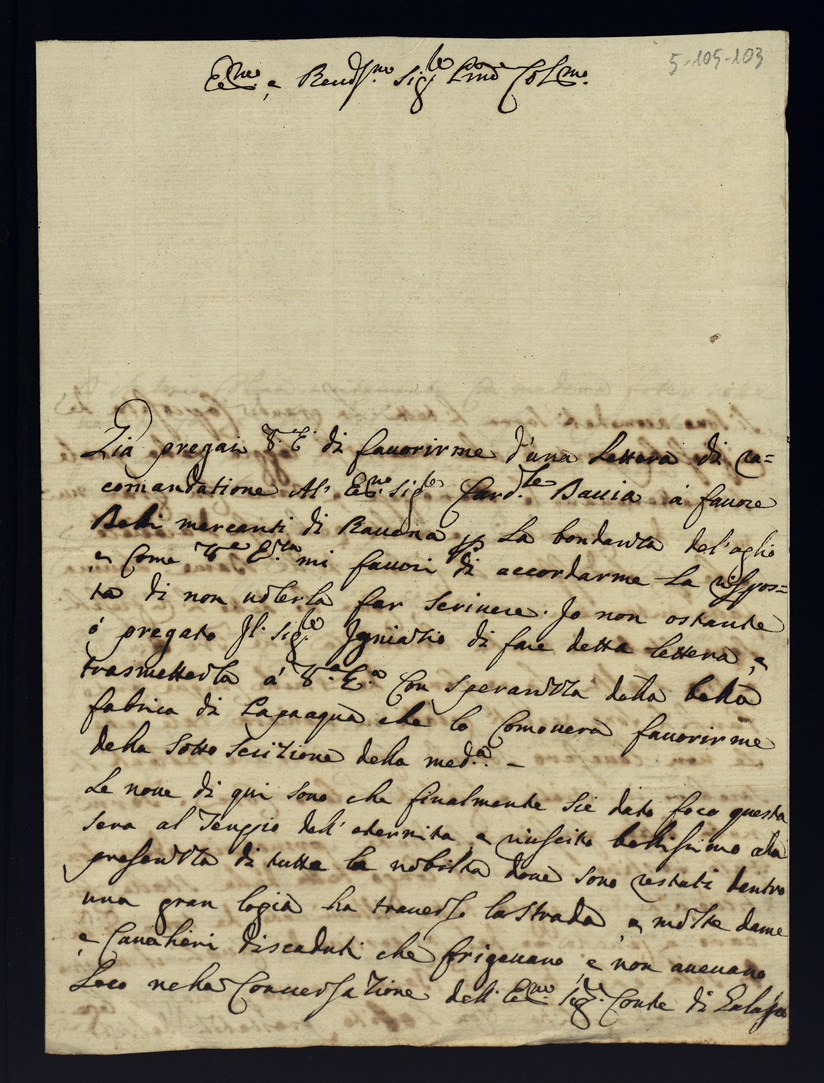 5-105-103
Em.mo e Reud.mo Sig.re P.rnẽ Col.mo
Già pregai V. E. di fauorirme d'una lettera di ra=
comandatione Al' Em.mo Sig.re Card.le Bauia à fauore
Delli mercanti di Rauena p La bondanza del'aglio
e Come V.a E.za mi fauori di accordarme La rispos=
ta di non uolerla far scriuere. Io non ostante
ó pregato Jl. Sig.re Jgniatio di fare detta lettera, e
trasmetterla a' V.a E.a Con speranza della bella
fabrica di la che lo Comouera fauorirme
della Sotto scrizione della med.a. -
Le noue di qui sono che finalmente sie dato foco questa
sera al Tenpio dell' eternita e riuscito bellissimo ala
presenza di tutta la nobilta doue sono restati dentro
una gran logia ha trauerso la strada e molte dame
e Cauallieri discaduti che frigeuano e non aueuano
Loco nella Conuersazione dell' Em.mo Sig.re Conte di